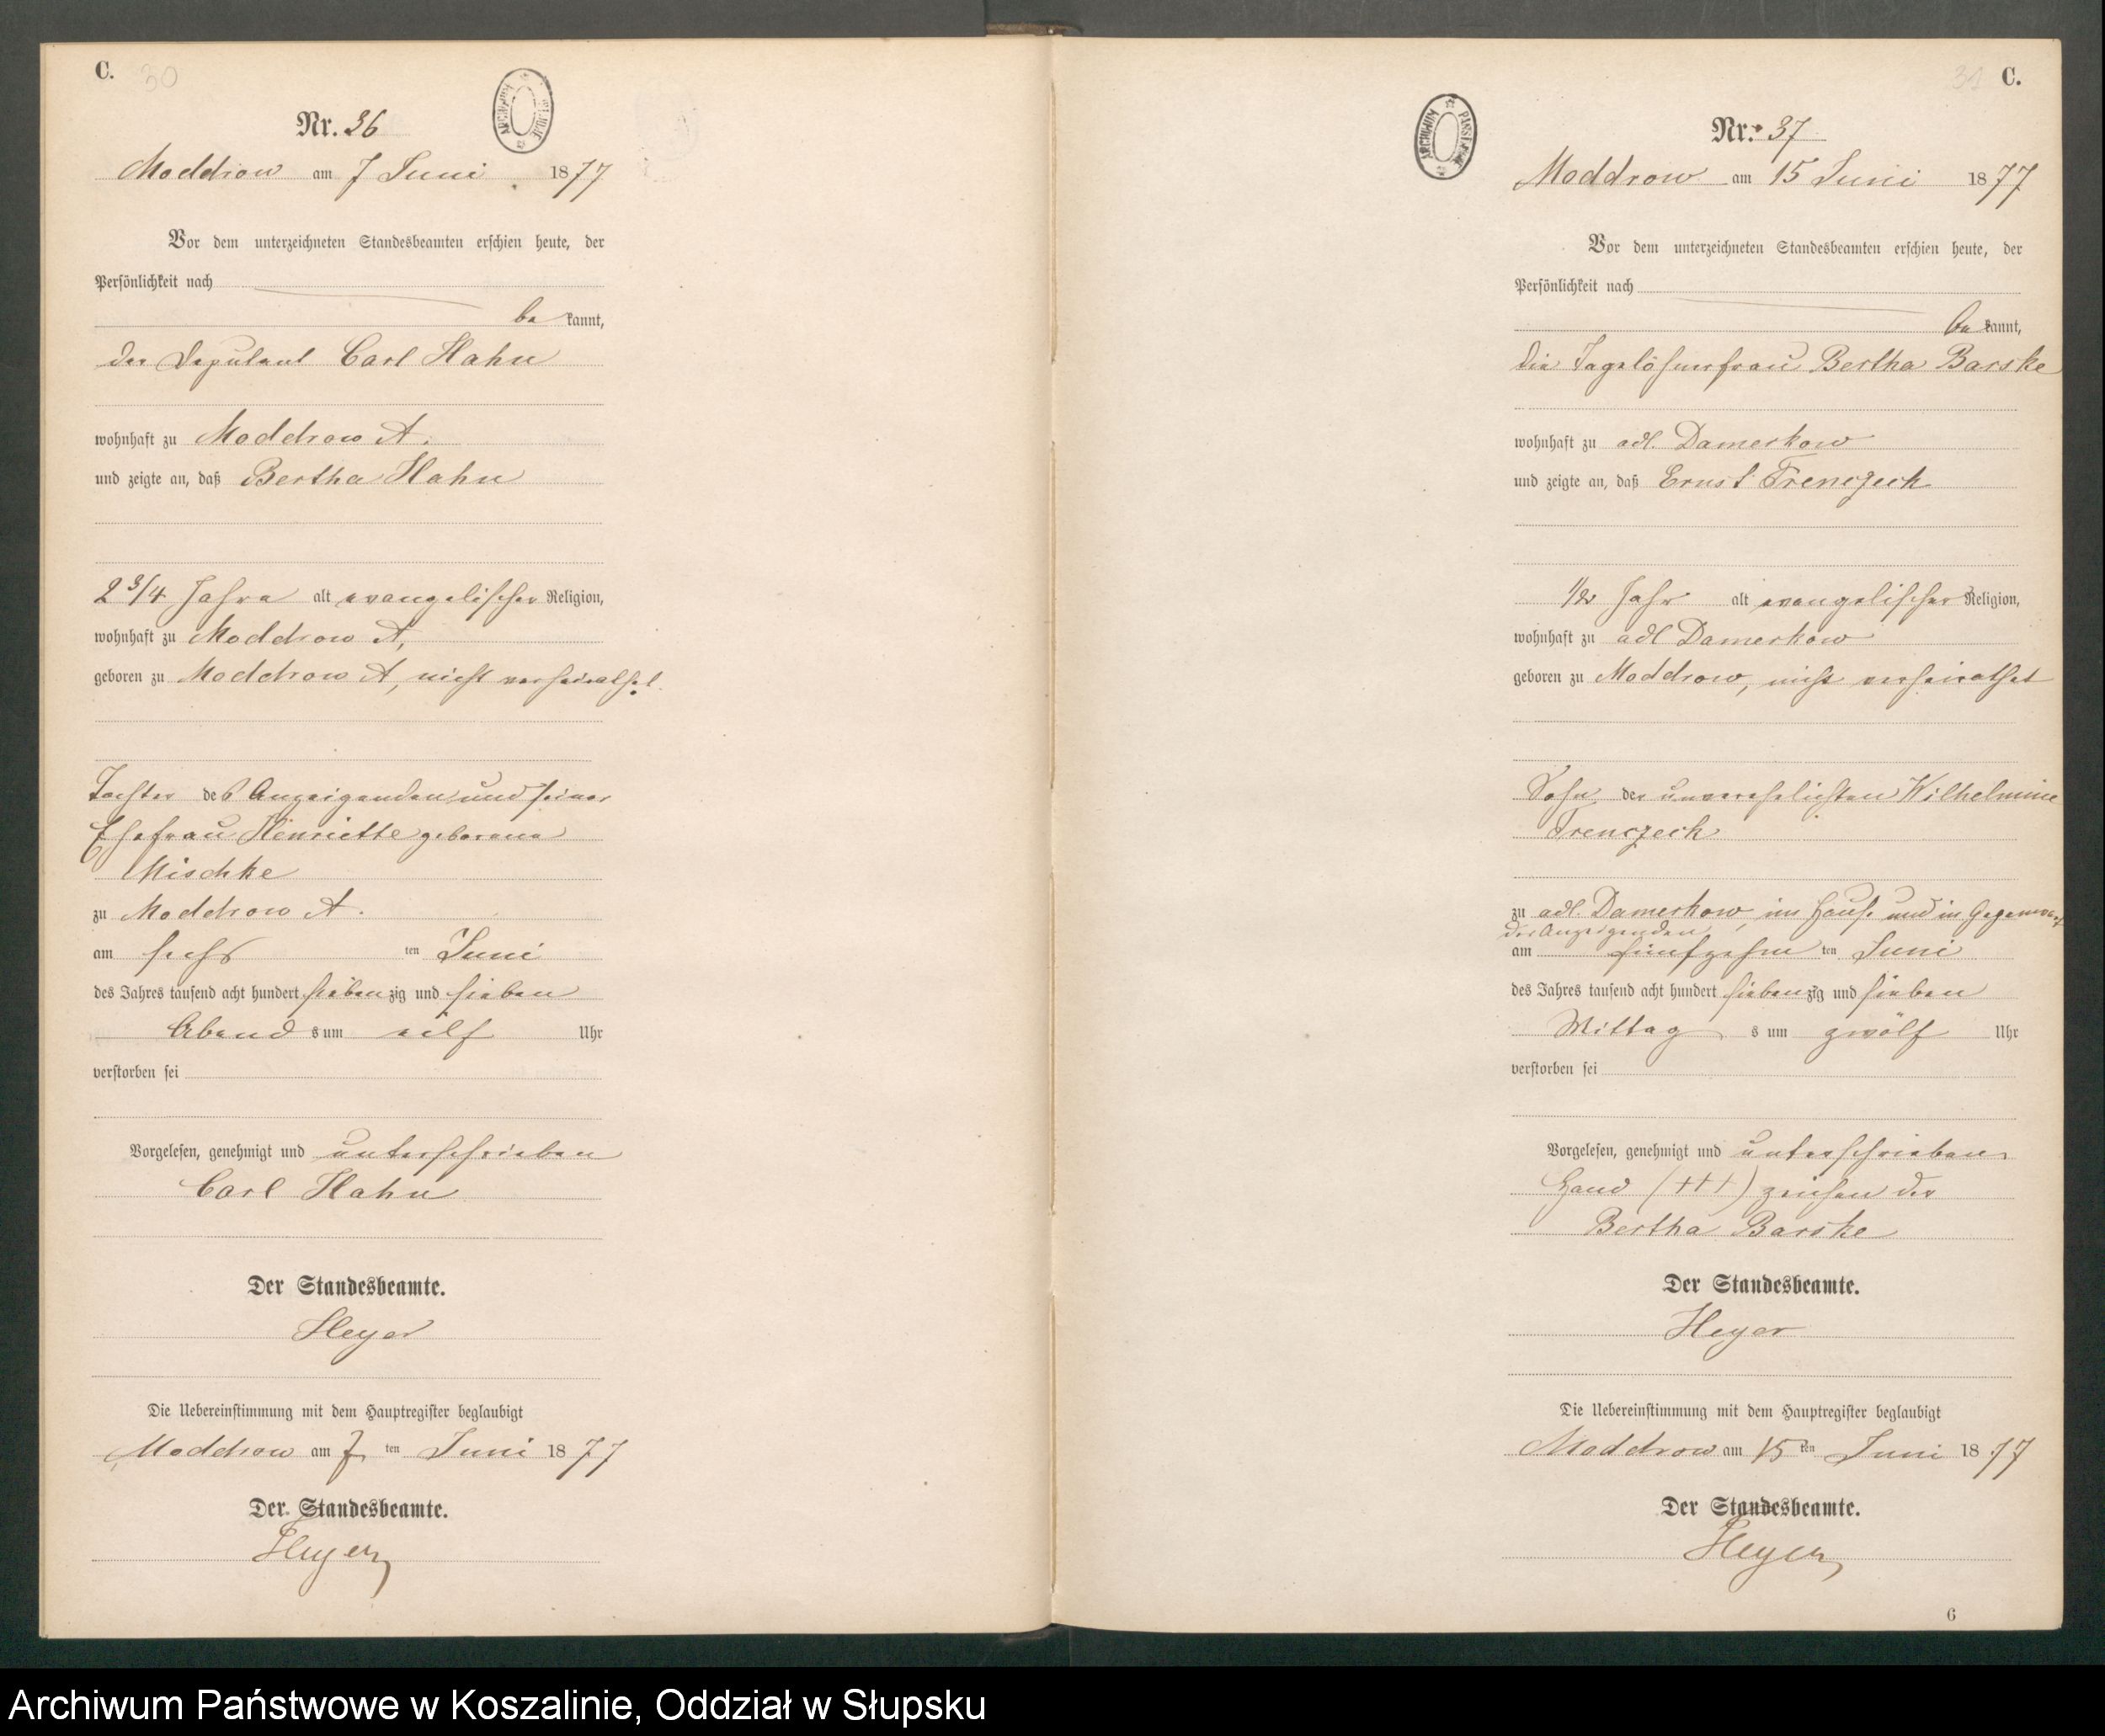 C. 30
Nr. 36
Moddrow am 7 Juni 1877
Vor dem unterzeichneten Standesbeamten erschien heute, der
Persönlichkeit nach
be kannt,
der Deputant Carl Hahn
wohnhaft zu Moddrow A.
und zeigte an, daß Bertha Hahn
2 3/4 Jahre alt evangelischer Religion,
wohnhaft zu Moddrow A,
geboren zu Moddrow A, nicht verheirathet.
Tochter des Anzeigenden und seiner
Ehefrau Henriette geborene
Mischke
zu Moddrow A.
am sechs ten Juni
des Jahres tausend acht hundert siebenzig und sieben
Abend s um eilf Uhr
verstorben sei
Vorgelesen, genehmigt und unterschrieben
Carl Hahn
Der Standesbeamte.
Heyer
Die Uebereinstimmung mit dem Hauptregister beglaubigt
Moddrow am 7 ten Juni 1877
Der Standesbeamte.
Heyer
31 C.
ARCHIWUM PAŃSTWOWE
Nr. 37
Moddrow am 15 Juni 1877
Vor dem unterzeichneten Standesbeamten erschien heute, der
Persönlichkeit nach
be kannt,
die Tagelöhnerfrau Bertha Barske
wohnhaft zu adl. Damerkow
und zeigte an, daß Ernst Trenczeck
1/2 Jahr alt evangelischer Religion,
wohnhaft zu adl Damerkow
geboren zu Moddrow, nicht verheirathet
Sohn der unverehelichten Wilhelmine
Trenczeck
zu adl. Damerkow, im Hause und in Gegenwart
der Anzeigenden
am fünfzehn ten Juni
des Jahres tausend acht hundert siebenzig und sieben
Mittag s um zwölf Uhr
verstorben sei
Vorgelesen, genehmigt und unterschrieben
Hand (+++) zeichen der
Bertha Barske
Der Standesbeamte.
Heyer
Die Uebereinstimmung mit dem Hauptregister beglaubigt
Moddrow am 15 ten Juni 1877
Der Standesbeamte.
Heyer
6
Archiwum Państwowe w Koszalinie, Oddział w Słupsku